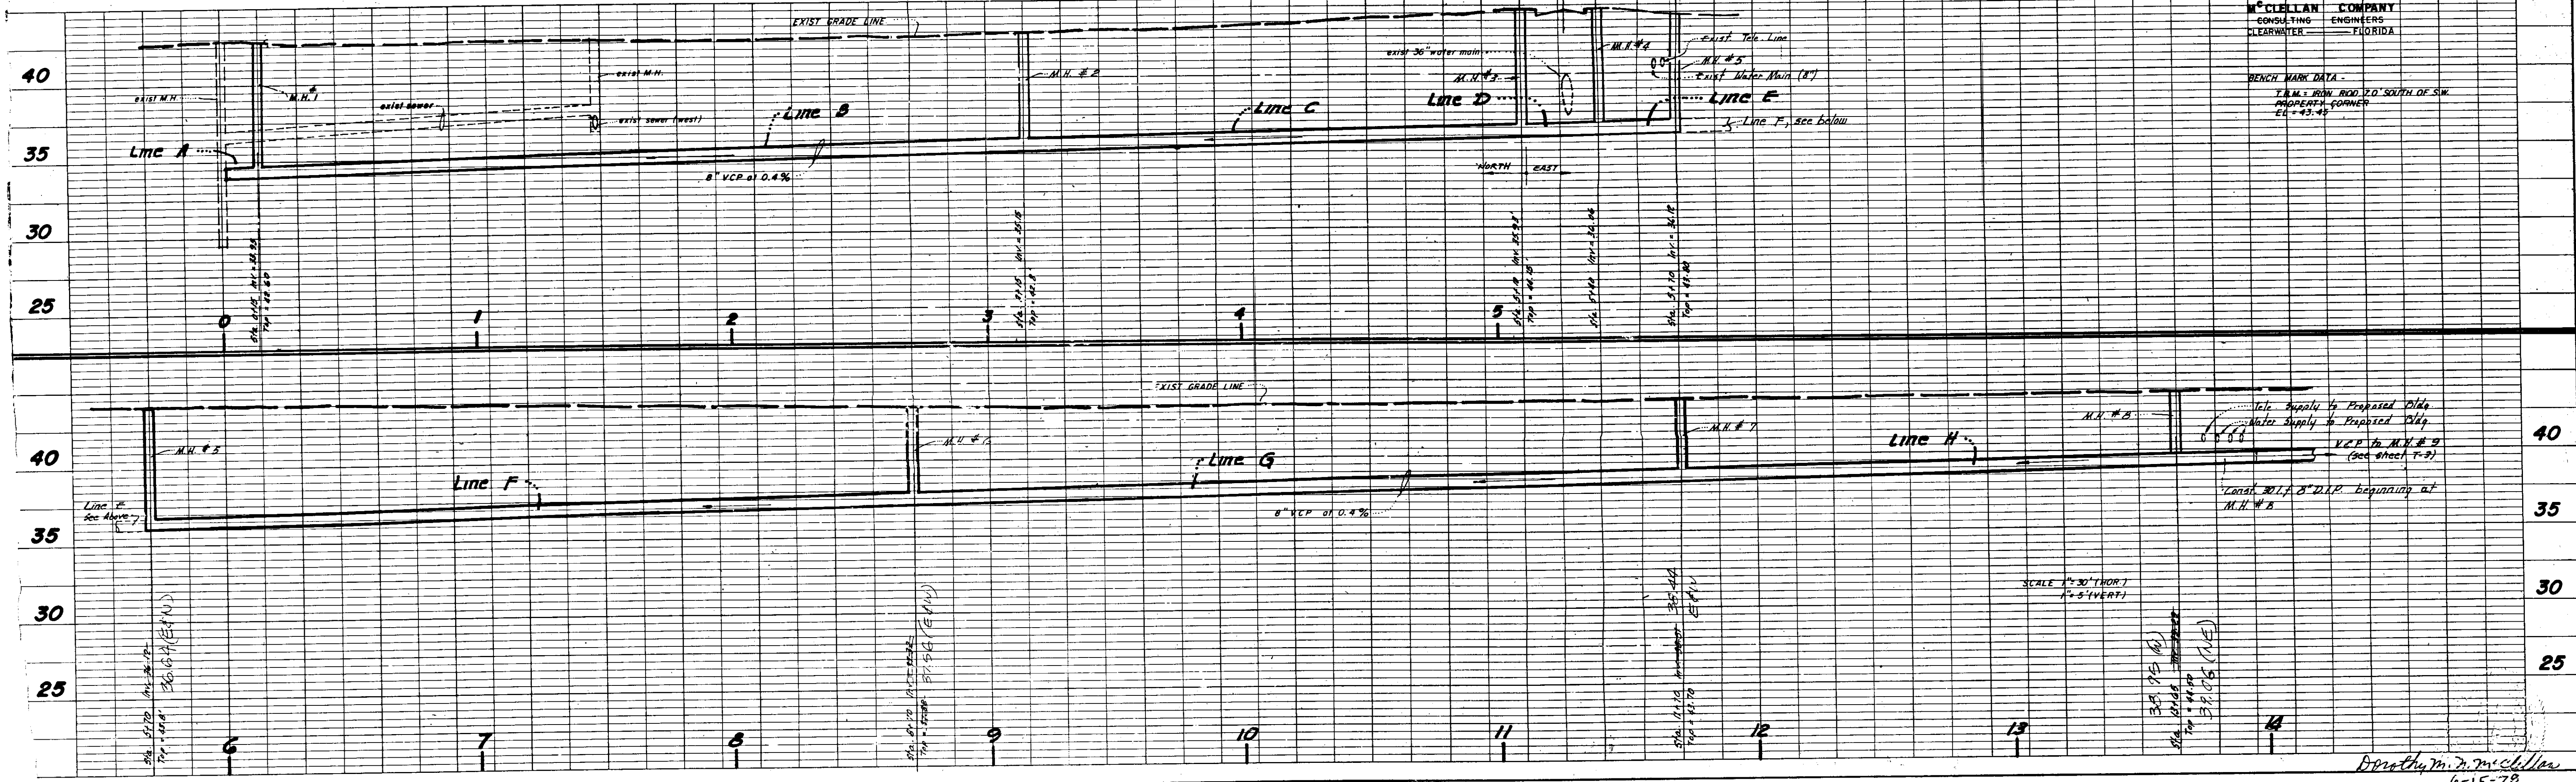 McCLELLAN COMPANY
CONSULTING ENGINEERS
CLEARWATER FLORIDA
BENCH MARK DATA -
T.B.M. = IRON ROD 7.0' SOUTH OF S.W.
PROPERTY CORNER
EL = 43.45
EXIST GRADE LINE
40
35
30
25
exist M.H.
M.H. #1
exist sewer
exist M.H.
exist sewer (west)
Line A
Line B
8" VCP at 0.4%
M.H. #2
Line C
exist 36" water main
M.H. #3
Line D
M.H. #4
Exist. Tele. Line
M.H. #5
Exist Water Main (8")
Line E
Line F, see below
NORTH EAST
Sta. 0+15
Top = 42.60
Sta. 3+15 Inv = 35.15
Top = 42.8'
Sta. 5+10 Inv 35.92'
Top = 44.15'
Sta. 5+40 Inv = 36.06
Sta. 5+70 Inv = 36.12
Top = 43.80
0 1 2 3 4 5
EXIST GRADE LINE
40
35
30
25
M.H. #5
Line E
See Above
Line F
M.H. #6
Line G
8" VCP at 0.4%
M.H. #7
Line H
M.H. #8
Tele Supply to Proposed Bldg
Water Supply to Proposed Bldg
V.C.P. to M.H. #9
(see sheet T-3)
Const. 30 l.f. 8" D.I.P. beginning at
M.H. #8
40
35
30
25
SCALE 1"=30' (HOR.)
1"=5' (VERT)
Sta. 5+70 Inv = 36.12
Top = 43.8'
36.64 (E&N)
Sta. 8+70
37.56 (E&W)
Sta. 11+70
Top = 43.70
38.44
E&W
Sta. 13+65
Top = 44.50
38.95 (W)
39.06 (NE)
6 7 8 9 10 11 12 13 14
Dorothy M. N. McClellan
6-15-78